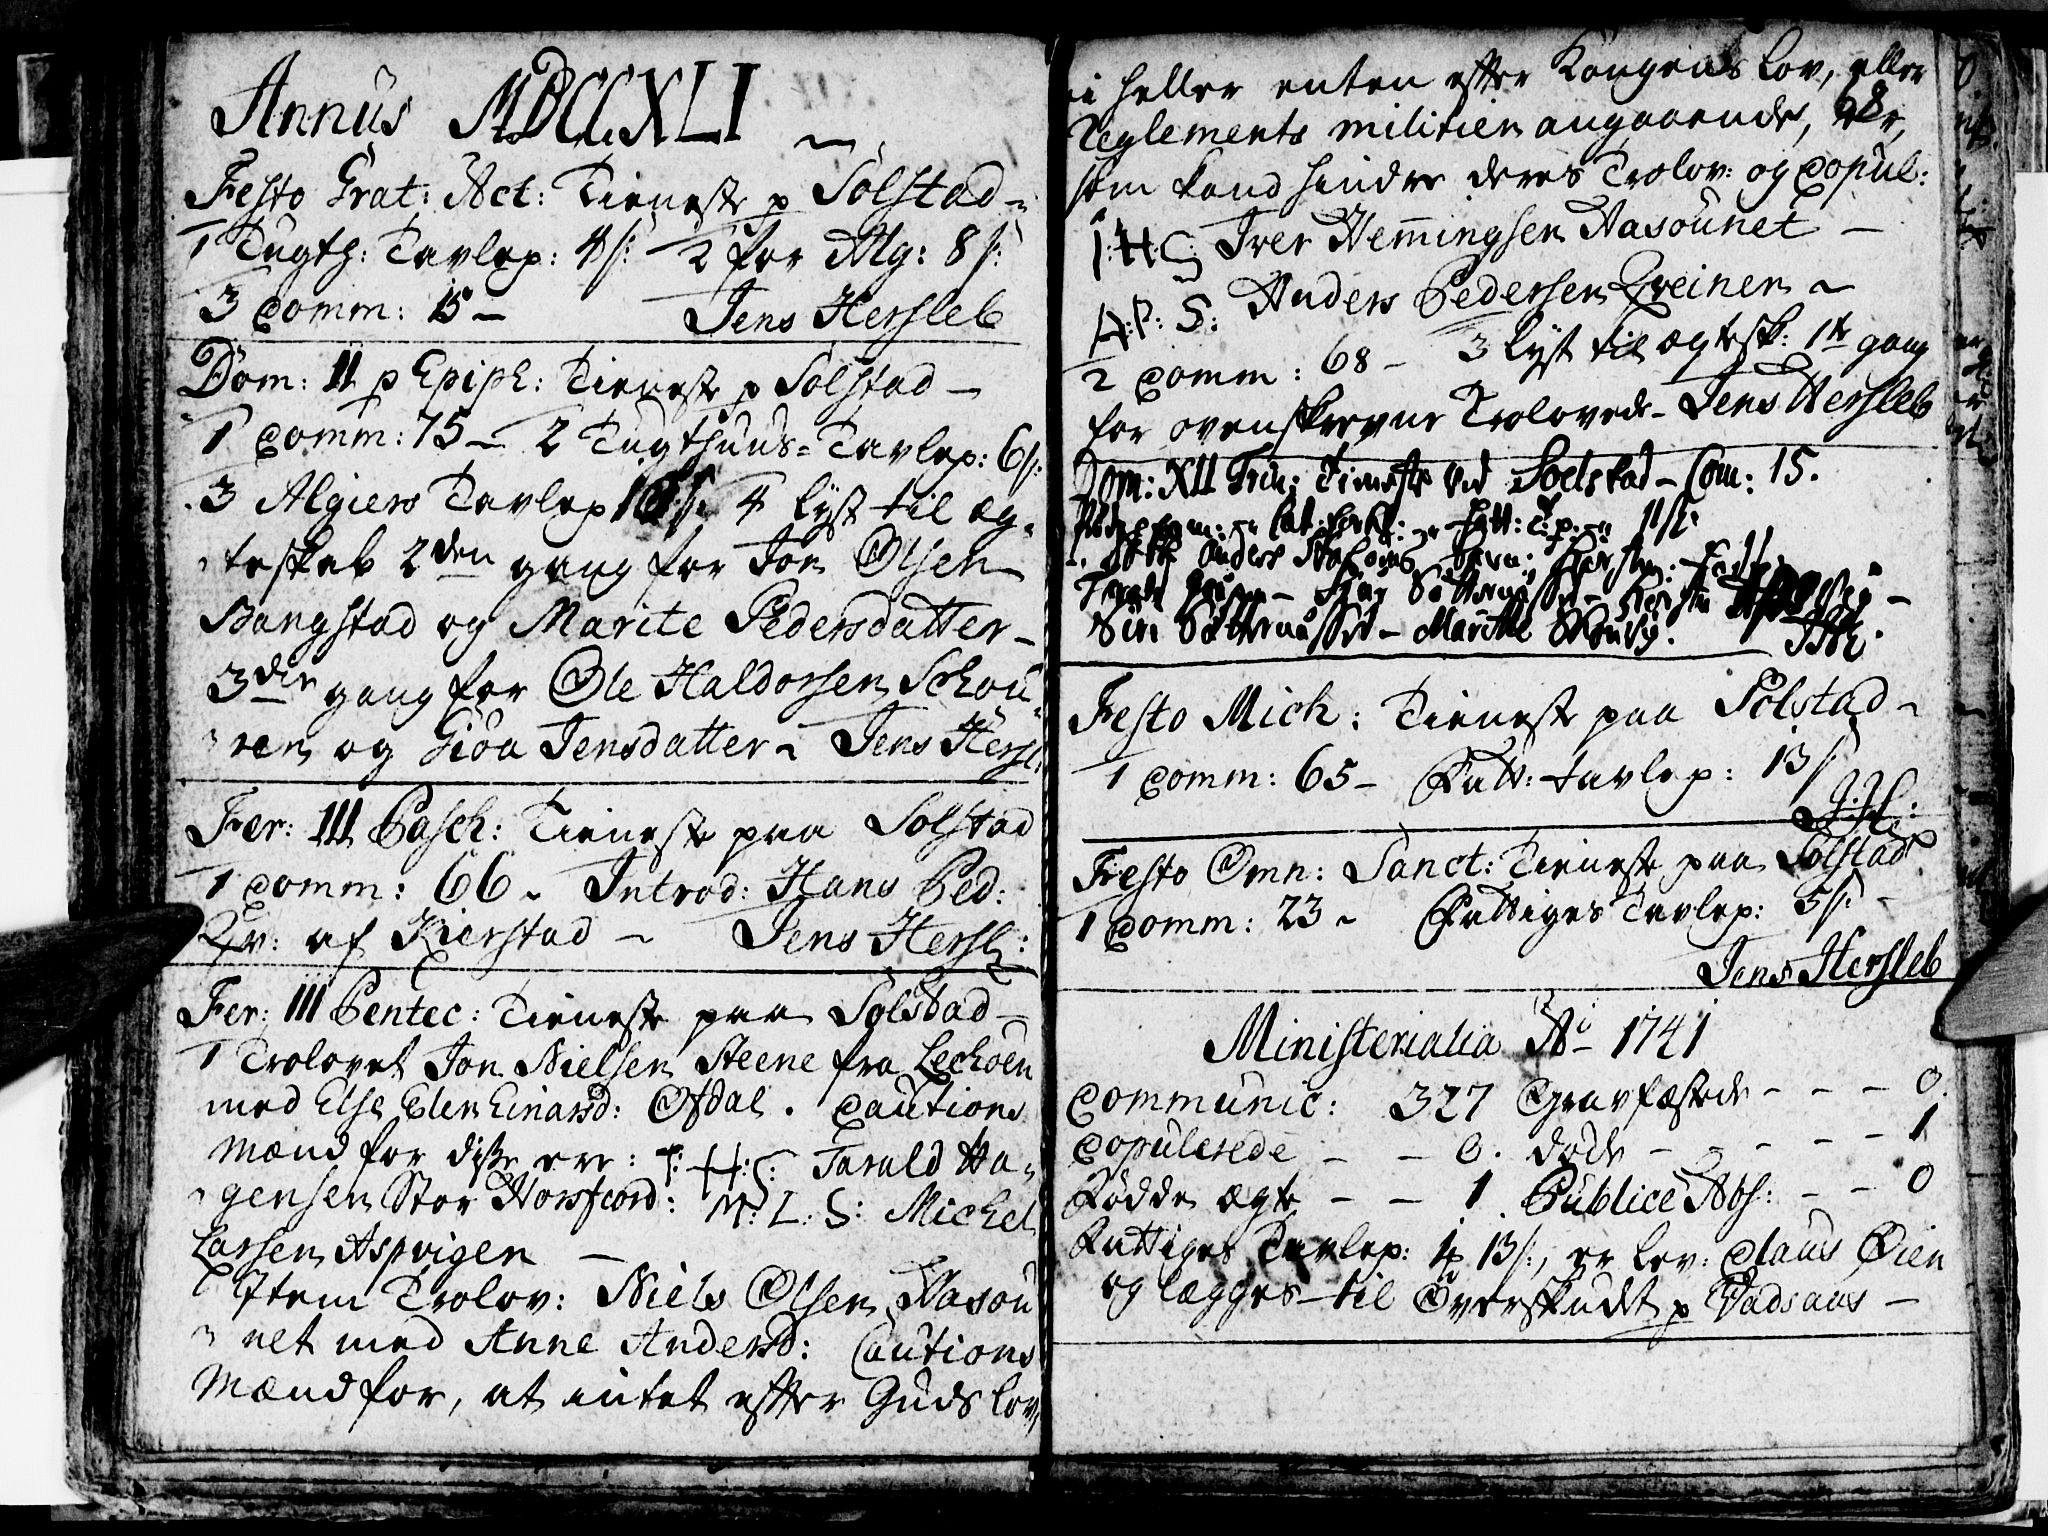 Annus MDCCXLI
Festo Grat: Act: Tieneste p Solstad
1 Tugth: Tavlep: 4 s: 2 for Alg: 8 s:
3 Comm: 15 — Jens Hersleb
Dom: II p Epiph: Tieneste p Solstad —
1 Comm: 75 — 2 Tugthuus=Tavlep: 6 s:
3 Algiers Tavlep 4 lyst til æg-
teskab 2den gang for Jon Olsen
Bangstad og Marite Pedersdatter —
3die gang for Ole Haldorsen Schou-
ren og Giøa Jensdatter — Jens Hersl:
Fer: III Pasch: Tieneste paa Solstad
1 Comm: 66 — Introd: Hans Ped:
Qv: af Kierstad — Jens Hersl:
Fer: III Pentec: Tieneste paa Solstad —
1 Trolovet Jon Nielsen Steene fra Lechoen
med Else Einarsd: Ofdal. Cautions
Mænd for disse ere: T: H: S: Tarald Ha-
gensen Stor Horsfiord: M: L: S: Michel
Larsen Aspvigen —
Item Trolov: Niels Olsen Nasou
net med Anne Andersd: Cautions
Mænd for, at intet efter Guds lov,
ei heller enten efter Kongens Lov, eller
Reglements militien angaaende, er,
som kand hindre deres Trolov: og Copul:
I: H: S: Iver Hemingsen Nasounet —
A: P: S: Anders Pedersen Qveinen —
2 Comm: 68 — 3 Lyst til ægtesk: 1te gang
for ovenskrevne Trolovede — Jens Hersleb
Dom: XII Trin: Tieneste ved Soelstad — Com: 15.
11 s:
Anders
Siri — Marithe
Festo Mich: Tieneste paa Solstad —
1 Comm: 65 — Fatt: tavlep: 13 s
J: H:
Festo Omn: Sanct: Tieneste paa Solstad
1 Comm: 23 — Fattiges Tavlep: 5 s: —
Jens Hersleb
Ministerialia Ao 1741
Communic: 327 Gravfæstede — — — 0.
Copulerede — — 0. døde — — — — — 1
Fødde ægte — — 1 Publice Abs: — — 0
Fattiges Tavlep: 13 s:, er lev: Claus Øien
og lægges til Overskudt p Vadsaas —